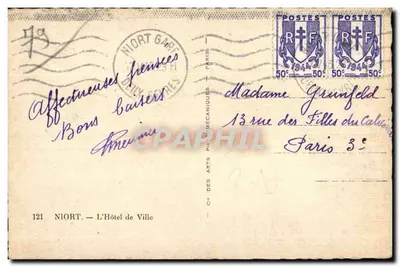 79
NIORT GARE
POSTES
RF
50c 50c
POSTES
RF
50c 50c
Affectueuses pensées
Bons baisers
Madame Grunfeld
13 rue des Filles du Calvaire
Paris 3e
CAPHPIL
CIE DES ARTS PHOTOMÉCANIQUES - PARIS
121 NIORT. - L'Hôtel de Ville